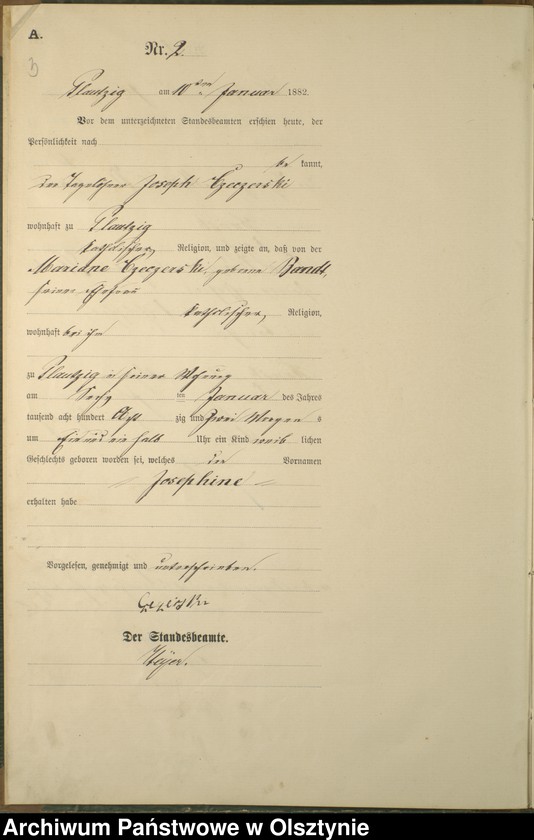 A.
3
Nr. 2.
Plautzig am 10ten Januar 1882.
Vor dem unterzeichneten Standesbeamten erschien heute, der
Persönlichkeit nach
be kannt,
der Tagelöhner Joseph Czeczerski
wohnhaft zu Plautzig
katholischer Religion, und zeigte an, daß von der
Mariane Czeczerski, geborene Barndt,
seiner Ehefrau
katholischer, Religion,
wohnhaft bei ihm
zu Plautzig in seiner Wohnung
am Sechs ten Januar des Jahres
tausend acht hundert Acht zig und zwei Morgen s
um Ein und ein halb Uhr ein Kind weib lichen
Geschlechts geboren worden sei, welches den Vornamen
Josephine
erhalten habe
Vorgelesen, genehmigt und unterschrieben.
Der Standesbeamte.
Archiwum Państwowe w Olsztynie